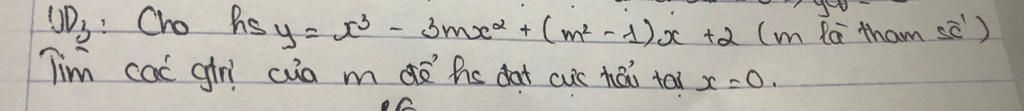 VD3: Cho hs y = x³ - 3mx² + (m² - 1)x + 2 (m là tham số)
Tìm các gtrị của m để hs đạt cực tiểu tại x = 0.